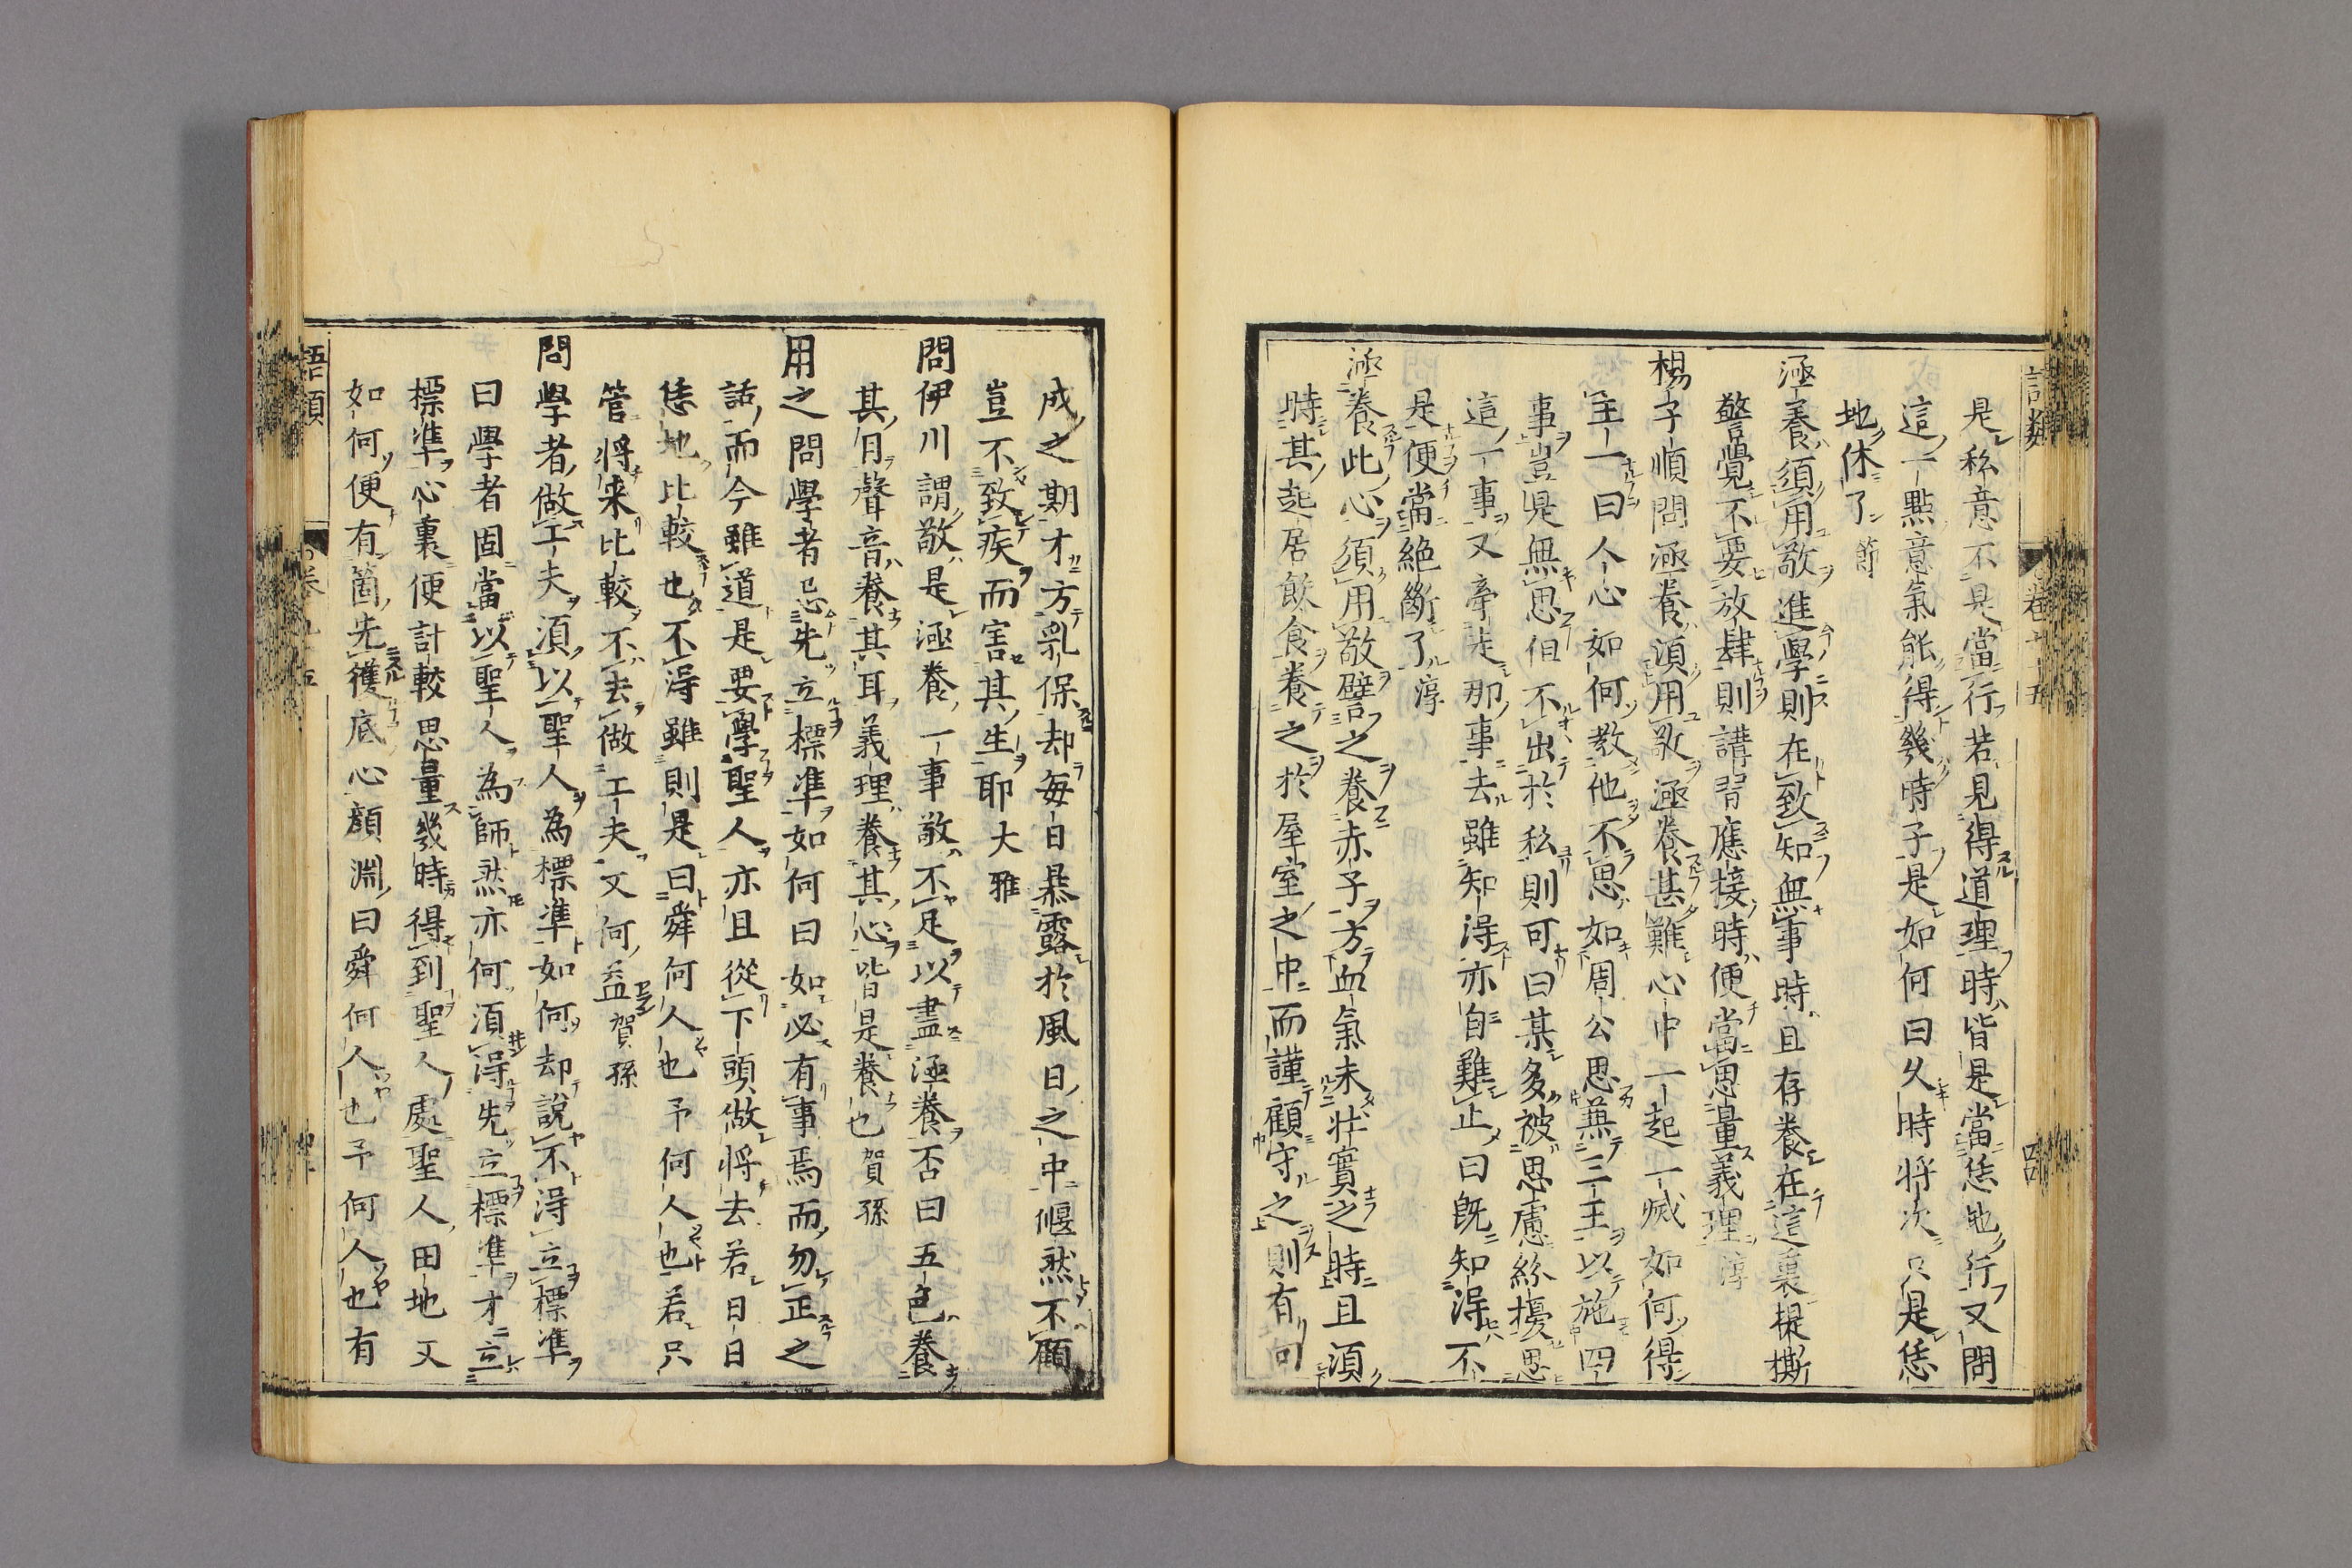 語類
卷九十五
四
是私意不是當行若見得道理時皆是當恁地行又問
這一點意氣能得幾時子是如何曰久時將次只是恁
地休了 節
涵養須用敬進學則在致知無事時且存養在這裏提撕
警覺不要放肆則講習應接時便當思量義理 淳
楊子順問涵養須用敬涵養甚難心中一起一滅如何得
主一曰人心如何教他不思如周公思兼三王以施四
事豈是無思但不出於私則可曰某多被思慮紛擾思
這一事又牽走那事去雖知得亦自難止曰既知得不
是便當絕斷了 淳
涵養此心須用敬譬之養赤子方血氣未壯實之時且須
時其起居飲食養之於屋室之中而謹顧守之則有向
成之期才方乳保却每日暴露於風日之中偃然不顧
豈不致疾而害其生耶 大雅
問伊川謂敬是涵養一事敬不足以盡涵養否曰五色養
其目聲音養其耳義理養其心皆是養也 賀孫
用之問學者忌先立標準如何曰如必有事焉而勿正之
話而今雖道是要學聖人亦且從下頭做將去若日日
恁地比較也不得雖則是曰舜何人也予何人也若只
管將来比較不去做工夫又何益 賀孫
問學者做工夫須以聖人為標準如何却說不得立標準
曰學者固當以聖人為師然亦何須得先立標準才立
標準心裏便計較思量幾時得到聖人處聖人田地又
如何便有箇先獲底心顏淵曰舜何人也予何人也有
語類